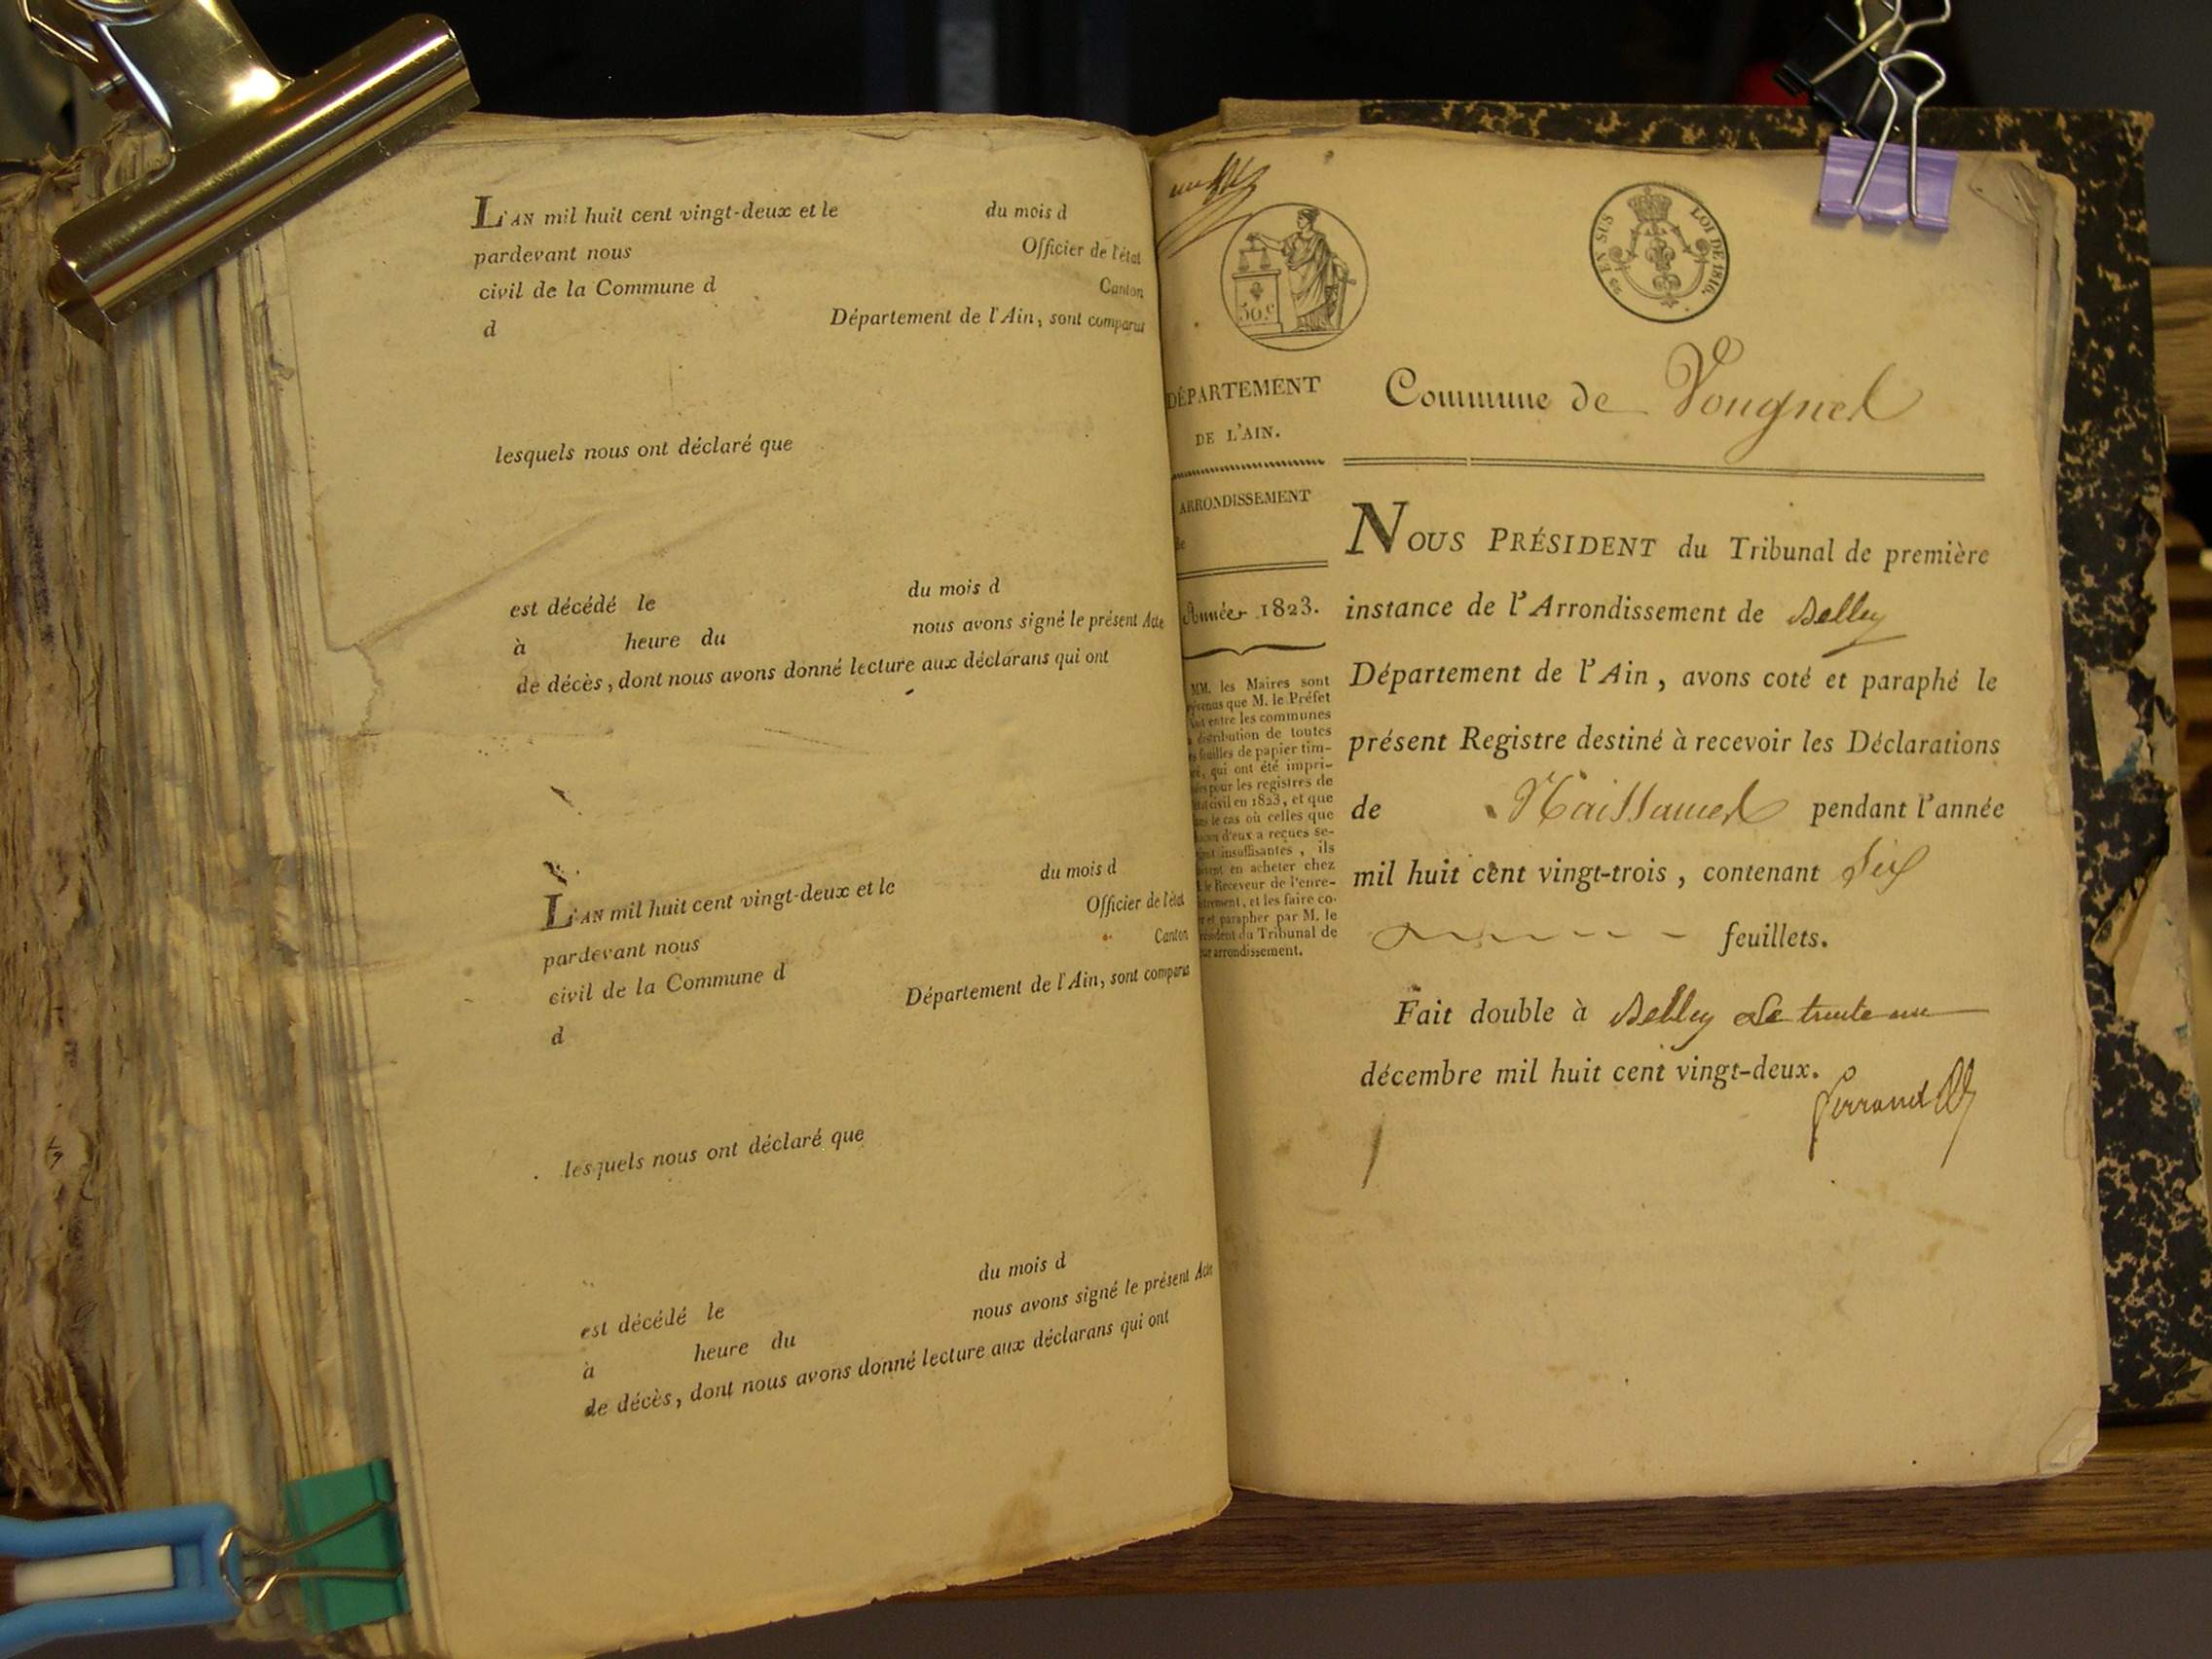 L'AN mil huit cent vingt-deux et le du mois d
pardevant nous Officier de l'état
civil de la Commune d Canton
d Département de l'Ain, sont comparus
lesquels nous ont déclaré que
est décédé le du mois d
à heure du nous avons signé le présent Acte
de décès, dont nous avons donné lecture aux déclarans qui ont
L'AN mil huit cent vingt-deux et le du mois d
pardevant nous Officier de l'état
civil de la Commune d Canton
d Département de l'Ain, sont comparus
lesquels nous ont déclaré que
est décédé le du mois d
à heure du nous avons signé le présent Acte
de décès, dont nous avons donné lecture aux déclarans qui ont
50 c
EN SUS LOI DE 1816.
DÉPARTEMENT
DE L'AIN.
ARRONDISSEMENT
de
Année 1823.
MM. les Maires sont
que M. le Préfet
entre les communes
distribution de toutes
feuilles de papier tim-
qui ont été impri-
pour les registres de
civil en 1823, et que
le cas où celles que
d'eux a reçues se-
insuffisantes, ils
en acheter chez
le Receveur de l'enre-
et les faire co-
et parapher par M. le
du Tribunal de
arrondissement.
Commune de Vougnes
NOUS PRÉSIDENT du Tribunal de première
instance de l'Arrondissement de Belley
Département de l'Ain, avons coté et paraphé le
présent Registre destiné à recevoir les Déclarations
de Naissances pendant l'année
mil huit cent vingt-trois, contenant Six
feuillets.
Fait double à Belley Le trente un
décembre mil huit cent vingt-deux.